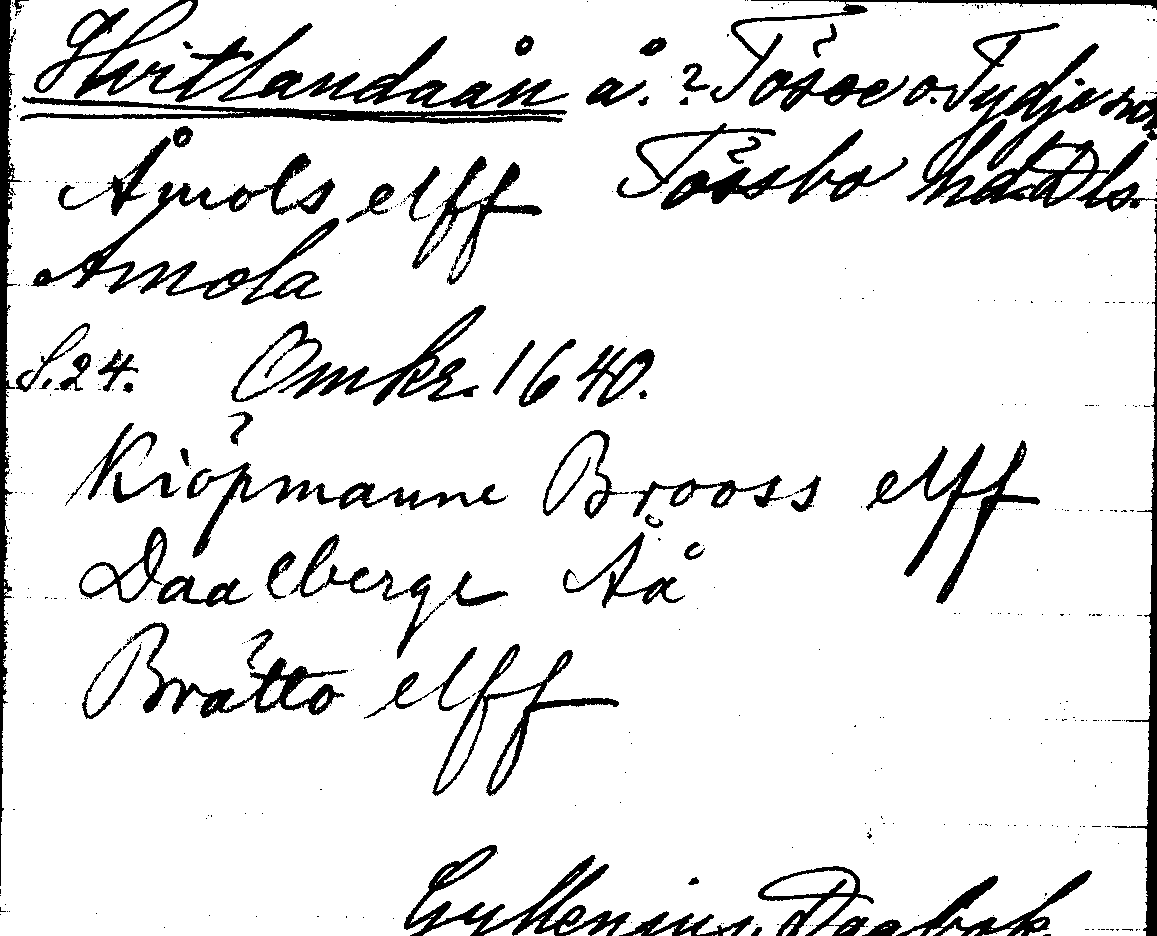 Hvitlandaån å.? Tösse o. Tydje snr
Åmols elff Tössbo hd. Dls.
Amola
S. 24. Omkr. 1640.
Kiöpmanne Brooss elff
Daalberge Åå
Brätto elff
Gyllenius, Dagbok